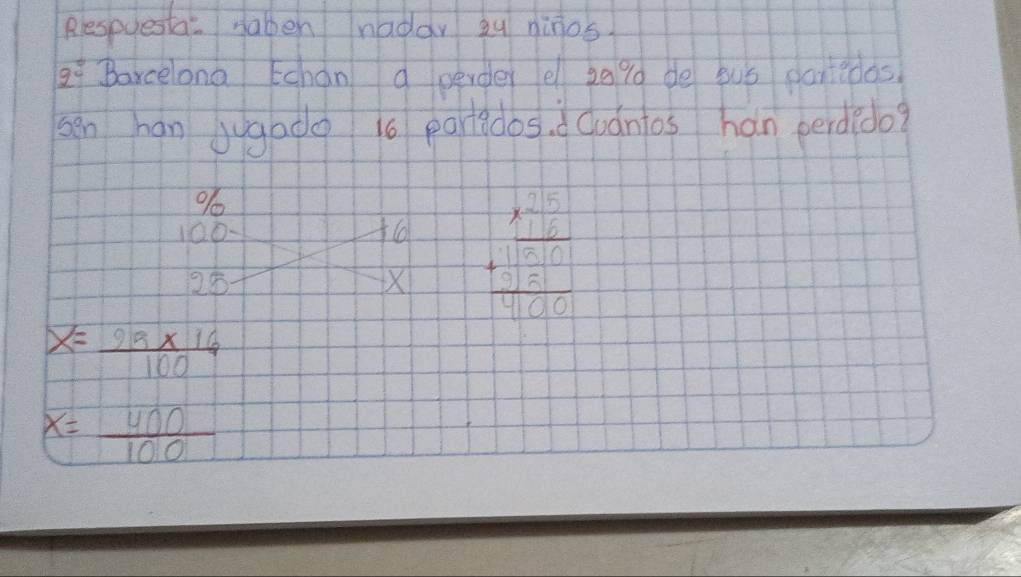 Respuesta: saben nadar 24 niños.
2º Barcelona Echan a perder el 25% de sus partidos.
han jugado 16 partidos. ¿Cuántos han perdido?
%
100 16
25 X
x 25
16
150
+ 25
400
X= 25 x 16
100
X= 400
100